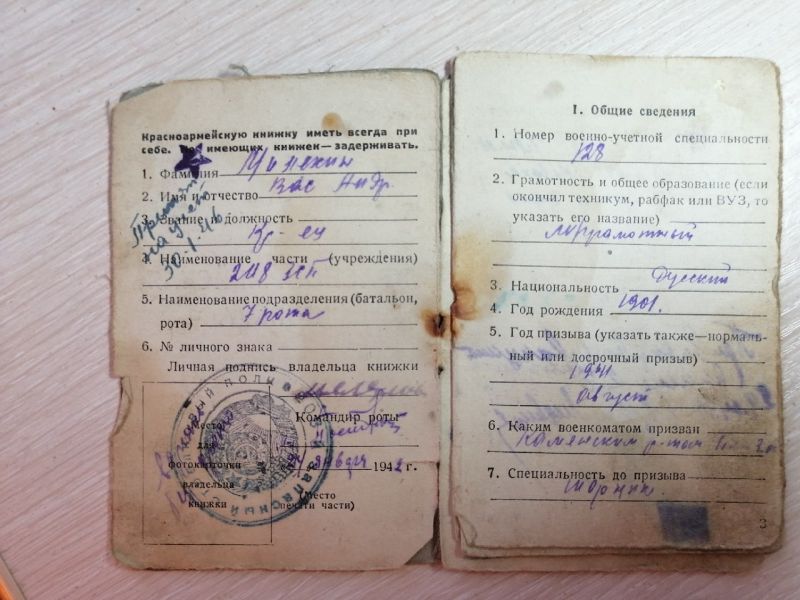 Красноармейскую книжку иметь всегда при
себе. Не имеющих книжек—задерживать.
1. Фамилия
2. Имя и отчество Вас Андр.
3. Звание и должность
Кр-ец
4. Наименование части (учреждения)
248 зсп
5. Наименование подразделения (батальон,
рота) 7 рота
6. № личного знака
Личная подпись владельца книжки
Командир роты
января 1942 г.
Место
для
фотокарточки
владельца
книжки
(Место
печати части)
на учет
30.1.46
I. Общие сведения
1. Номер военно-учетной специальности
128
2. Грамотность и общее образование (если
окончил техникум, рабфак или ВУЗ, то
указать его название)
малограмотный
3. Национальность Русский
4. Год рождения 1901.
5. Год призыва (указать также—нормаль-
ный или досрочный призыв)
1941
август
6. Каким военкоматом призван
Каменским
7. Специальность до призыва
3